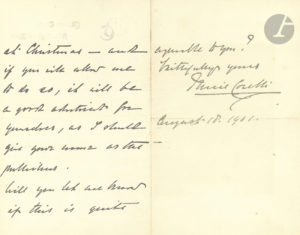 at Christmas – and
if you will allow me
to do so, it will be
a good advertisement for
yourselves, as I should
give your name as the
publishers.
Will you let me know
if this is quite
agreeable to you?
Faithfully yours
Marie Corelli
August 18. 1901.